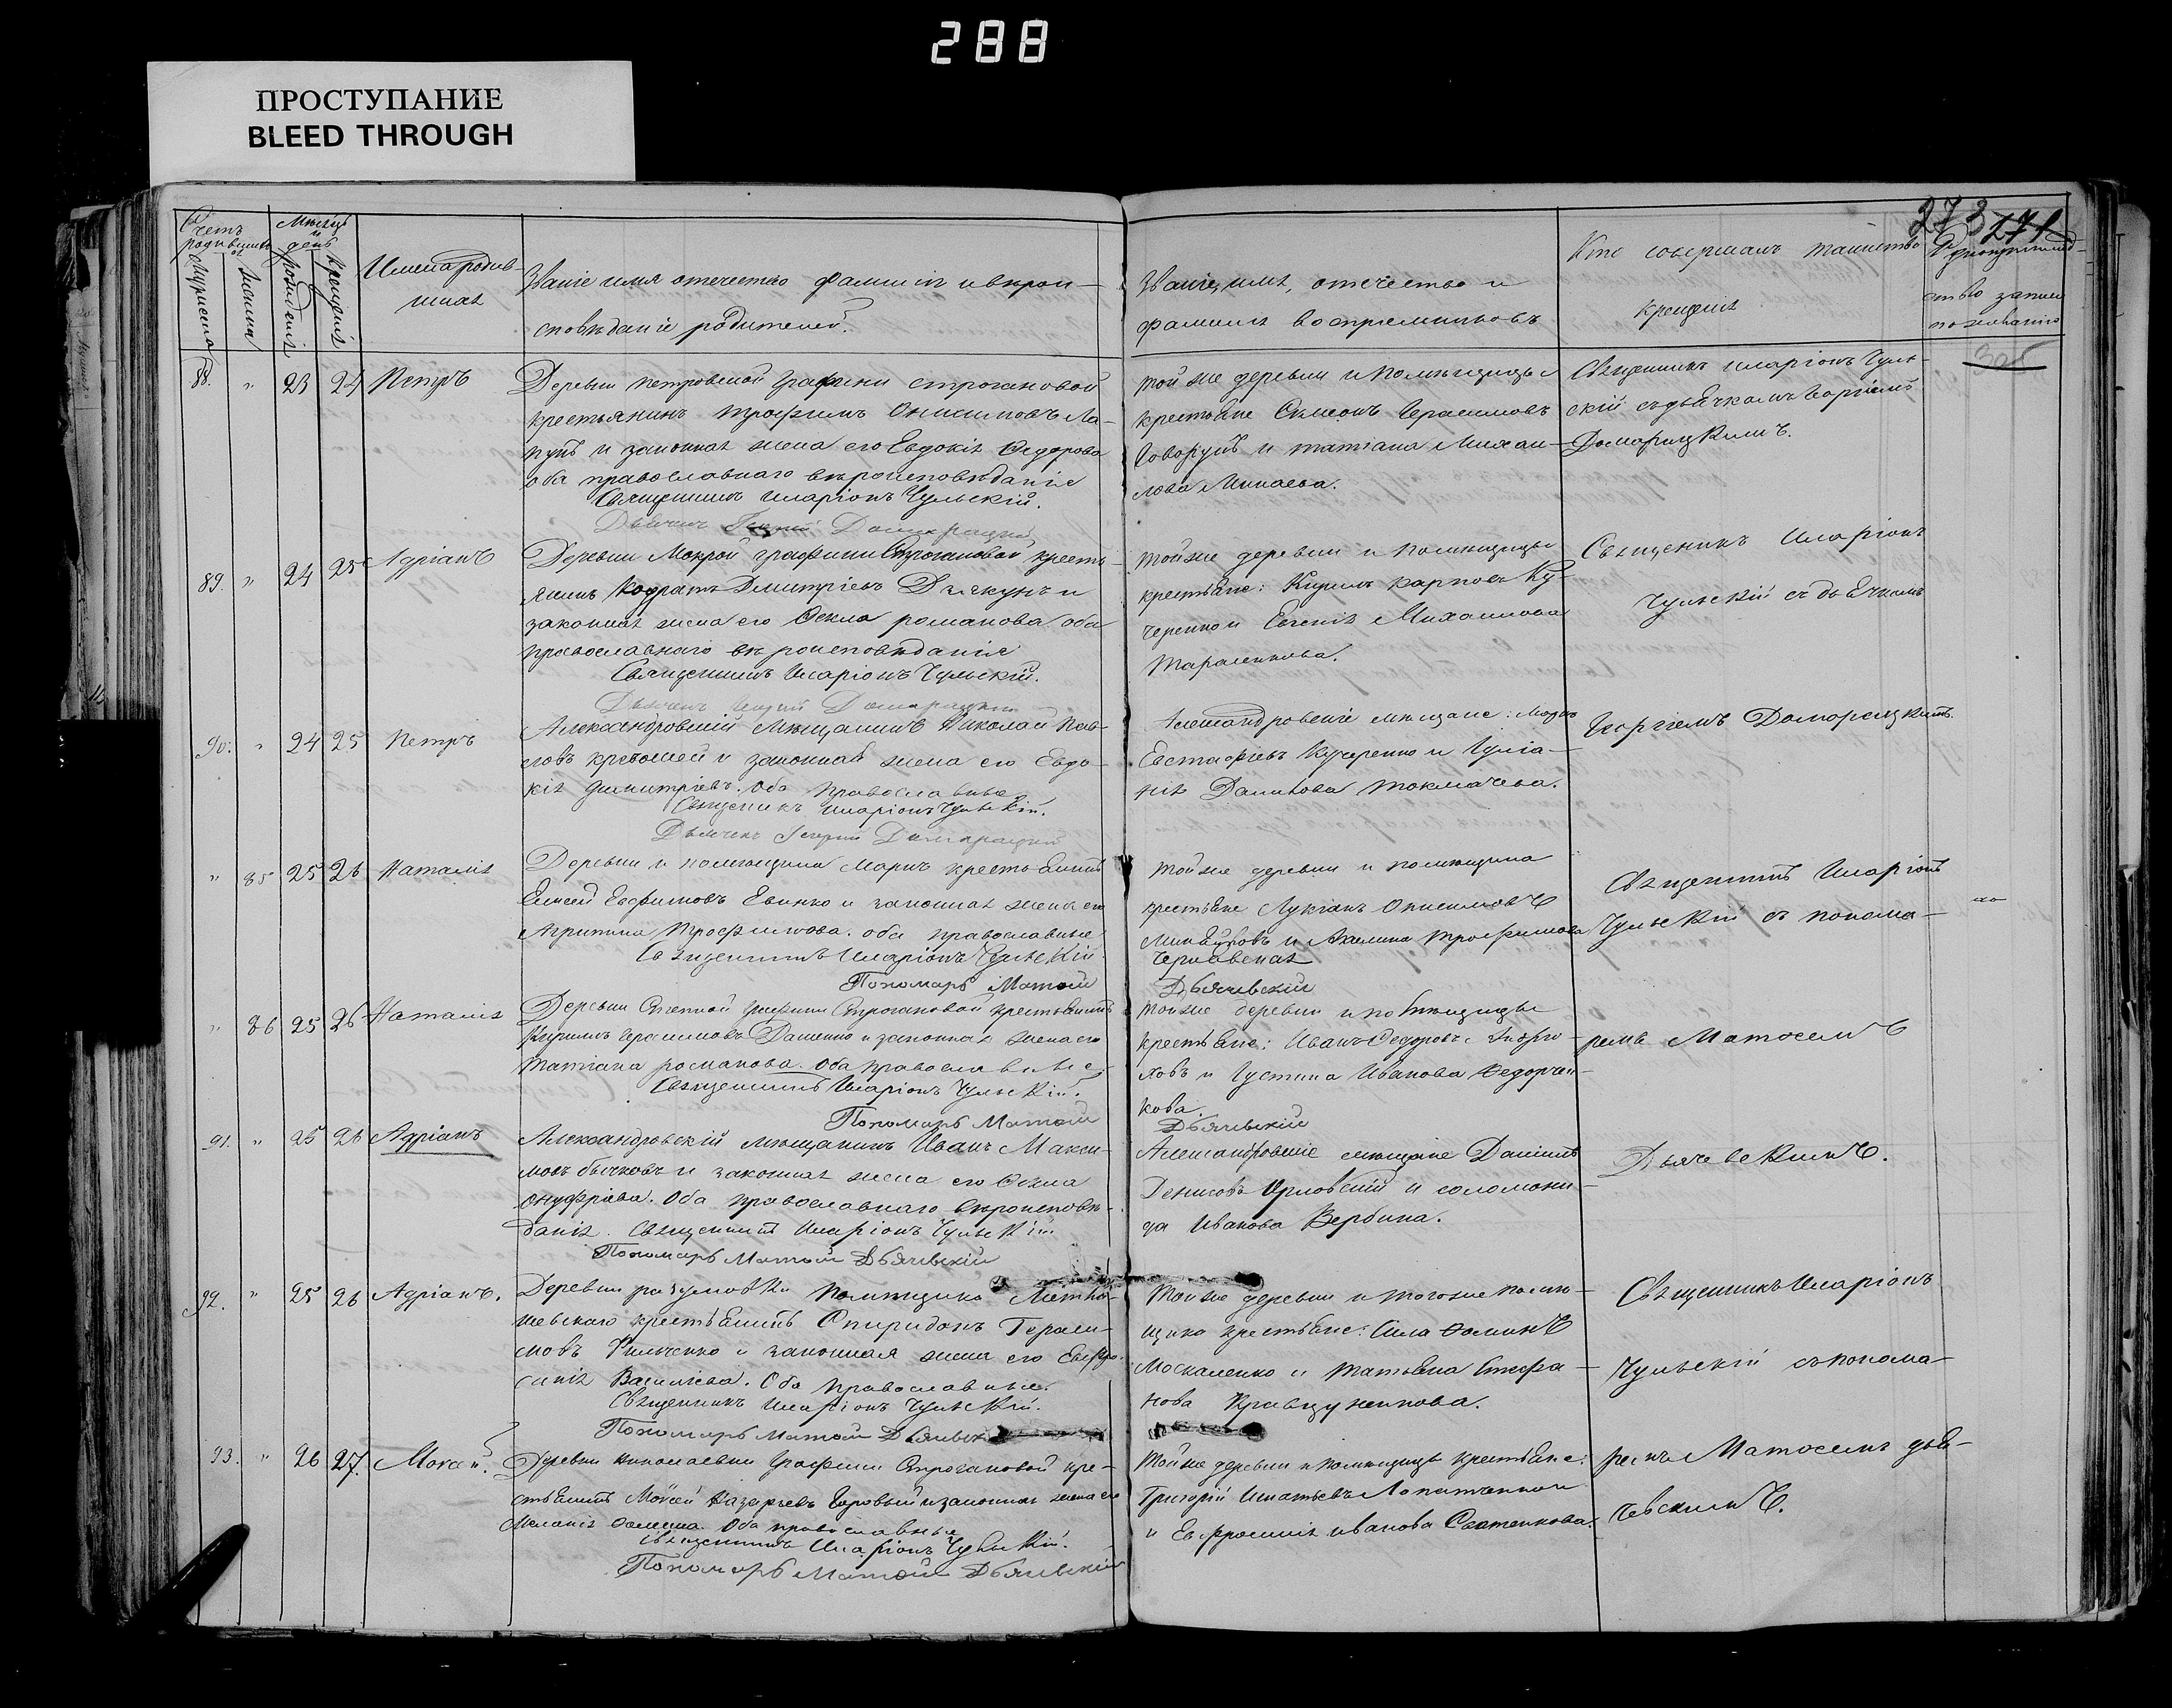 288
ПРОСТУПАНИЕ
BLEED THROUGH
273 271
Счетъ родившихся
Мѣсяцъ и день
Мужеска
Женска
рожденія
Крещенія
Имена родив-
шихъ
Званіе имя отечество фамилія и вѣрои-
сповѣданіе родителей.
Званіе, имя, отечество и
фамилія воспріемниковъ
Кто совершалъ таинство
крещенія
88. " 23 24 Петръ
Деревни Петровской Графини Строгановой
крестьянинъ Трофимъ Онисимовъ Ла-
пут и законная жена его Евдокія Федорова
оба православнаго вѣроисповѣданіе
Священникъ Иларіонъ Чульскій.
Дьячекъ Георгій Домарацкій
Той же деревни и помѣщицы
крестьяне Симеонъ Герасимовъ
Говорунъ и Татіана Михаи-
лова Минаева.
Священникъ Иларіонъ Чуль-
скій съ дьячкомъ Георгіемъ
Домарицкимъ.
89. " 24 25 Адріанъ
Деревни Мокрой графини Строгановой кресть-
янинъ Кодратъ Дмитріевъ Дзякунъ и
законная жена его Фекла Романова оба
православнаго вѣроисповѣданіе
Священникъ Иларіонъ Чульскій.
Дьячекъ Георгій Домарацкій
Той же деревни и помѣщицы
крестьяне: Кирилъ Карповъ Ку-
черенко и Евгенія Михаилова
Тарасенкова.
Священикъ Иларіонъ
Чульскій съ дьячкомъ
90. " 24 25 Петръ
Александровскій Мѣщанинъ Николай Пав-
ловъ Кривошей и законная жена его Евдо-
кія Димитріевъ. Оба православные
Священикъ Иларіонъ Чульскій.
Дьячекъ Георгій Домарацкій
Александровскіе мѣщане:
Евстафіевъ Кучеренко и Іуліа-
нія Данилова Токмачева.
Георгіемъ Домарецкимъ.
" 85 25 26 Наталія
Деревни и помѣщика Маркъ крестьянинъ
Елисей Евфимовъ Евинко и законная жена его
Агрипина Трофимова. оба православные
Священникъ Иларіонъ Чульскій
Пономарь Матѳей
Той же деревни и помѣщика
крестьяне Лукіанъ Онисимовъ
и Акилина Трофимова
Чернавская
Дьячевскій
Священникъ Иларіонъ
Чульскій съ понома-
" 86 25 26 Наталія
Деревни Степной Графини Строгановой крестьянинъ
Кирилъ Герасимовъ Даценко и законная жена его
Татіана Романова. Оба православные
Священникъ Иларіонъ Чульскій.
Пономарь Матѳей
Той же деревни и помѣщицы
крестьяне: Иванъ Федоровъ
ховъ и Іустина Иванова Федорчен-
кова.
Дьячевскій
ремъ Матѳеемъ
91. " 25 26 Адріанъ
Александровскій мѣщанинъ Иванъ Макси-
мовъ Бычковъ и законная жена его Фекла
Онуфріева. Оба православнаго вѣроисповѣ-
данія. Священникъ Иларіонъ Чульскій
Пономарь Матѳей Дьячевскій
Александровскіе мѣщане Даніилъ
Денисовъ Орловскій и Соломони-
да Иванова Вербина.
Дьячевскимъ.
92. " 25 26 Адріанъ.
Деревни Разумовки Помѣщика
шевскаго крестьянинъ Спиридонъ Гераси-
мовъ Фильченко и законная жена его Евфро-
синія Василіева. Оба православные.
Священникъ Иларіонъ Чульскій.
Пономарь Матѳей
Той же деревни и тогоже помѣ-
щика крестьяне: Сила Фоминъ
Москаленко и Татьяна Стефа-
нова Кравцуненкова.
Священникъ Иларіонъ
Чульскій съ понома-
93. " 26 27. Мокей.
Деревни Николаевки Графини Строгановой кре-
стьянинъ Мокей Назарьевъ и законная жена его
Меланія Фомина. Оба православные
Священникъ Иларіонъ Чульскій.
Пономарь Матѳей Дьячевскій
Той же деревни и помѣщицы крестьяне:
Григорій Игнатьевъ Лопатченко
и Евфросинія Иванова Светенкова.
ремъ Матѳеемъ Дья-
чевскимъ.